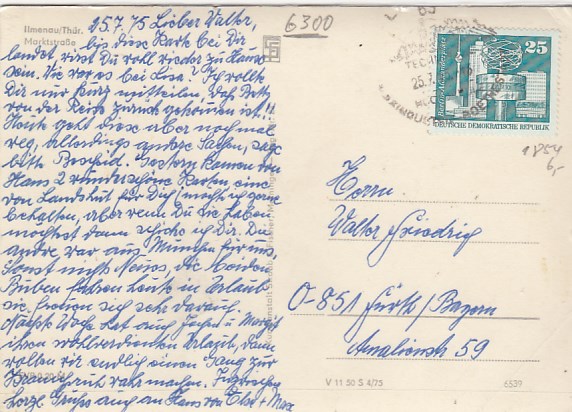 Ilmenau/Thür.
Marktstraße
6300
25.7.75 Lieber Walter,
bis diese Karte bei Dir
landet, wirst Du wohl wieder zu Hause
sein. Wie war es bei Lisa? Ich wollte
Dir nur kurz mitteilen, daß
von der Reise zurück gekommen ist!!
Heute geht diese aber nochmal
weg, allerdings andere Sachen, sage
bitte Bescheid. Gestern kamen von
Hans 2 wunderschöne Karten eine
von Landshut für Dich, möcht ich gerne
behalten, aber wenn Du sie haben
möchtest dann schicke ich Dir. Die
andre war aus München für uns.
Sonst nichts Neues, die beiden
Buben fahren heute in Urlaub
sie freuen sich sehr darauf.
Nächste Woche hat auch
ihren wohlverdienten Urlaub, dann
wollen wir endlich einen Gang zur
wahr machen. Inzwischen
herzl. Grüße auch an Hans von Else + Max
25
Berlin, Alexanderplatz
DEUTSCHE DEMOKRATISCHE REPUBLIK
25.7.
1854
6,-
Herrn
Walter Friedrich
O-851 Fürth/Bayern
Amalienstr 59
V 11 50 S 4/75
6539